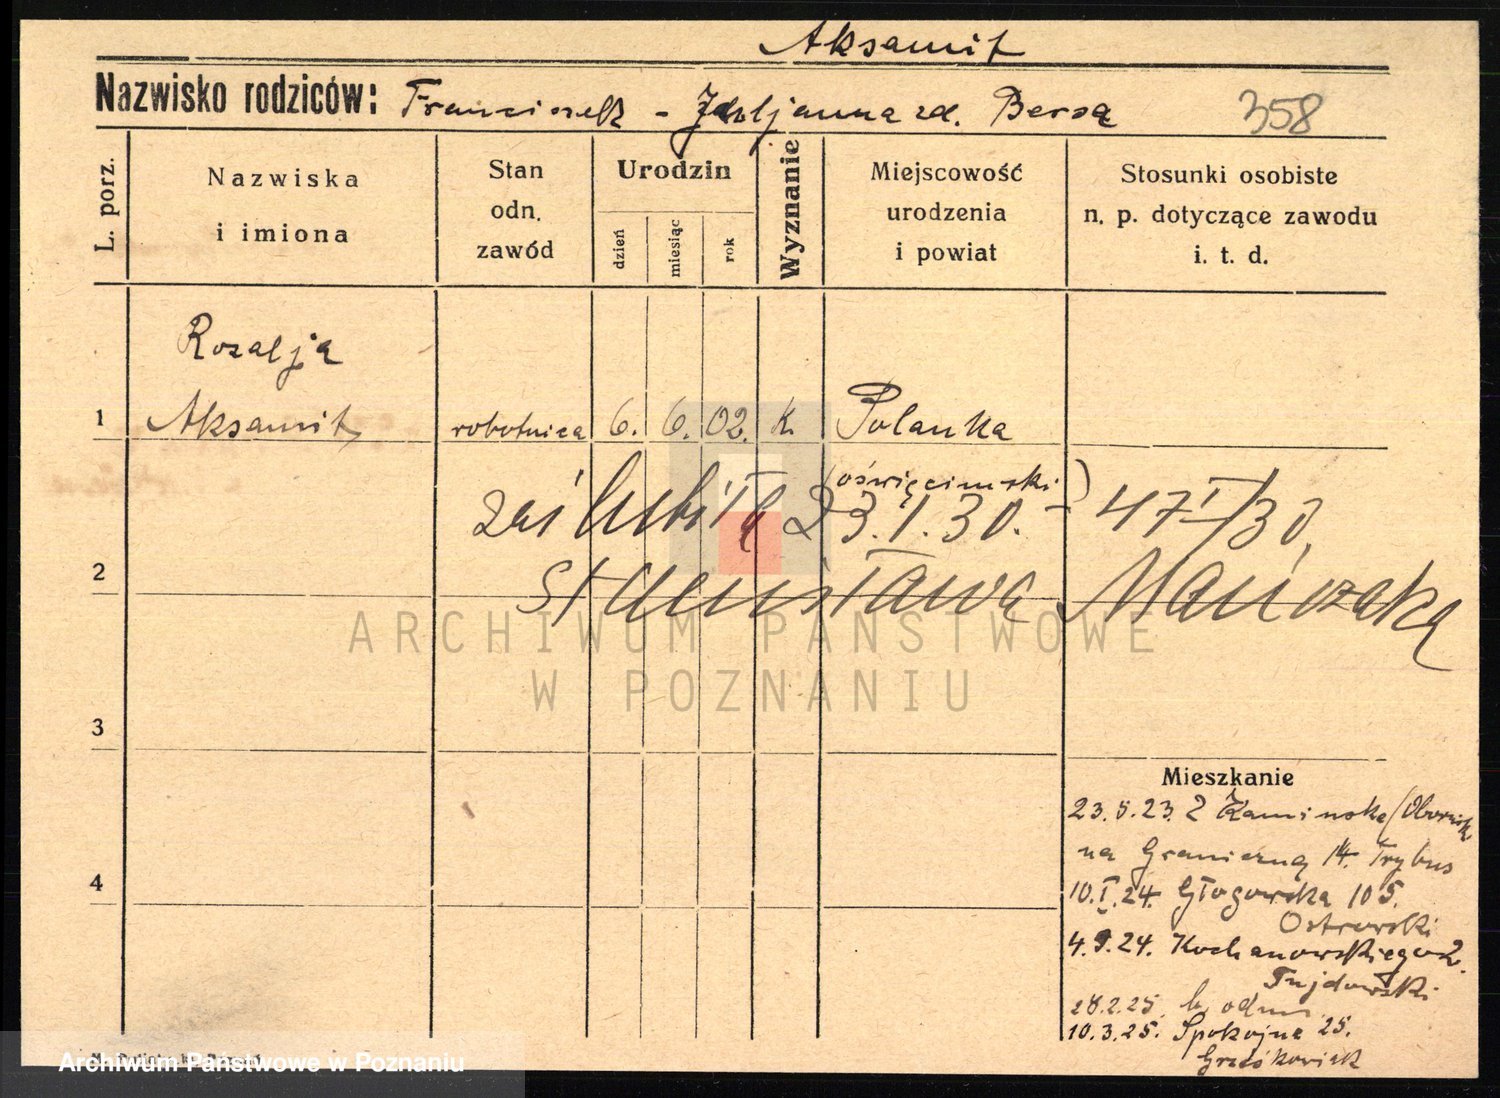 Aksamit
Nazwisko rodziców: Franciszek - Juljanna zd. Bersą
358
L. porz.
Nazwiska
i imiona
Stan
odn.
zawód
Urodzin
dzień
miesiąc
rok
Wyznanie
Miejscowość
urodzenia
i powiat
Stosunki osobiste
n. p. dotyczące zawodu
i. t. d.
Rozalja
1 Aksamit robotnica 6. 6. 02. K. Polanka
(oświęcimski)
zaślubiła 23.1.30. - 47 I/30.
2 Stanisława Mańczaka
3
4
Mieszkanie
23.5.23. Z Kaminska (Obornik
na Graniczną 14. Trybus
10.I.24. Głogowska 105.
Ostrowski
4.9.24. Kochanowskiego 2.
Fujdowski
28.2.25. b. odm.
10.3.25. Spokojna 25.
Grześkowiak
ARCHIWUM PAŃSTWOWE
W POZNANIU
Archiwum Państwowe w Poznaniu